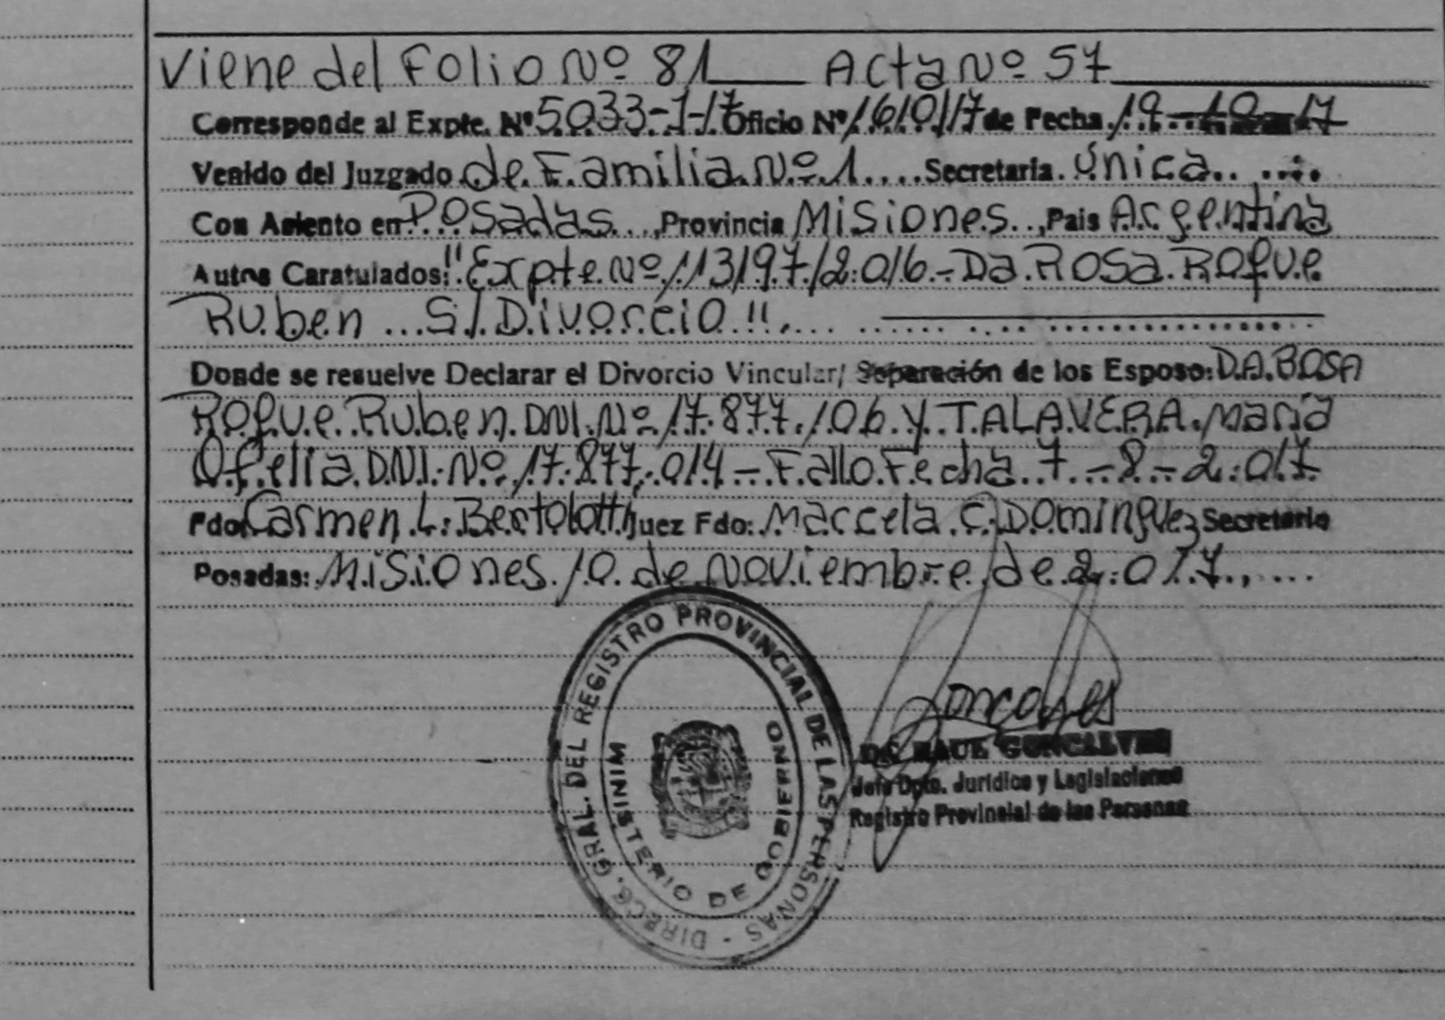 Viene del Folio Nº 81 Acta Nº 57
Corresponde al Expte. Nº 5033-1-17 Oficio Nº 1610/17 de Fecha 19-10-17
Venido del Juzgado de Familia Nº 1.... Secretaria. Única.. ....
Con Asiento en Posadas..., Provincia Misiones..., Pais Argentina
Autos Caratulados: "Expte. Nº 113197/2.016.- Da Rosa Roque
Ruben ... S/ Divorcio",...
Donde se resuelve Declarar el Divorcio Vincular/ Separación de los Esposo: DA ROSA
Roque Ruben. DNI. Nº 17.877.106 y TALAVERA. María
Ofelia. DNI. Nº 17.877.014 - Fallo Fecha 7-8-2.017
Fdo. Carmen. L. Bertolotti Juez Fdo: Marcela. C. Dominguez Secretario
Posadas: Misiones. 10. de Noviembre de 2.017.,....
DIREC. GRAL. DEL REGISTRO PROVINCIAL DE LAS PERSONAS -
MINISTERIO DE GOBIERNO
RAUL GONCALVES
Jefe Dpto. Jurídico y Legislaciones
Registro Provincial de las Personas